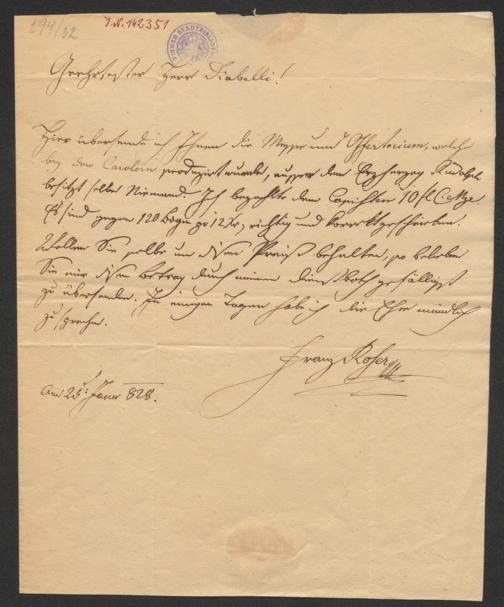 294/32
J.N. 142351
WIENER STADTBIBLIOTHEK
Geehrtester Herr Diabelli!
Hier übersende ich Ihnen die Messe und Offertorium, welche
bey den Carolern produzirt wurde, ausser dem Erzherzog Rudolph
besitzt selbe Niemand. Ich bezahlte dem Copisten 10 fl C. Mze.
Es sind gegen 120 Bögen zu 12 Xr, richtig und korrekt geschrieben.
Wollen Sie selbe um diesen Preiß behalten, so belieben
Sie mir diesen Betrag durch meinen Dienstboth gefälligst
zu übersenden. In einigen Tagen habe ich die Ehre mündlich
zu sprechen.
Franz Roser
Am 25: Jäner 828.